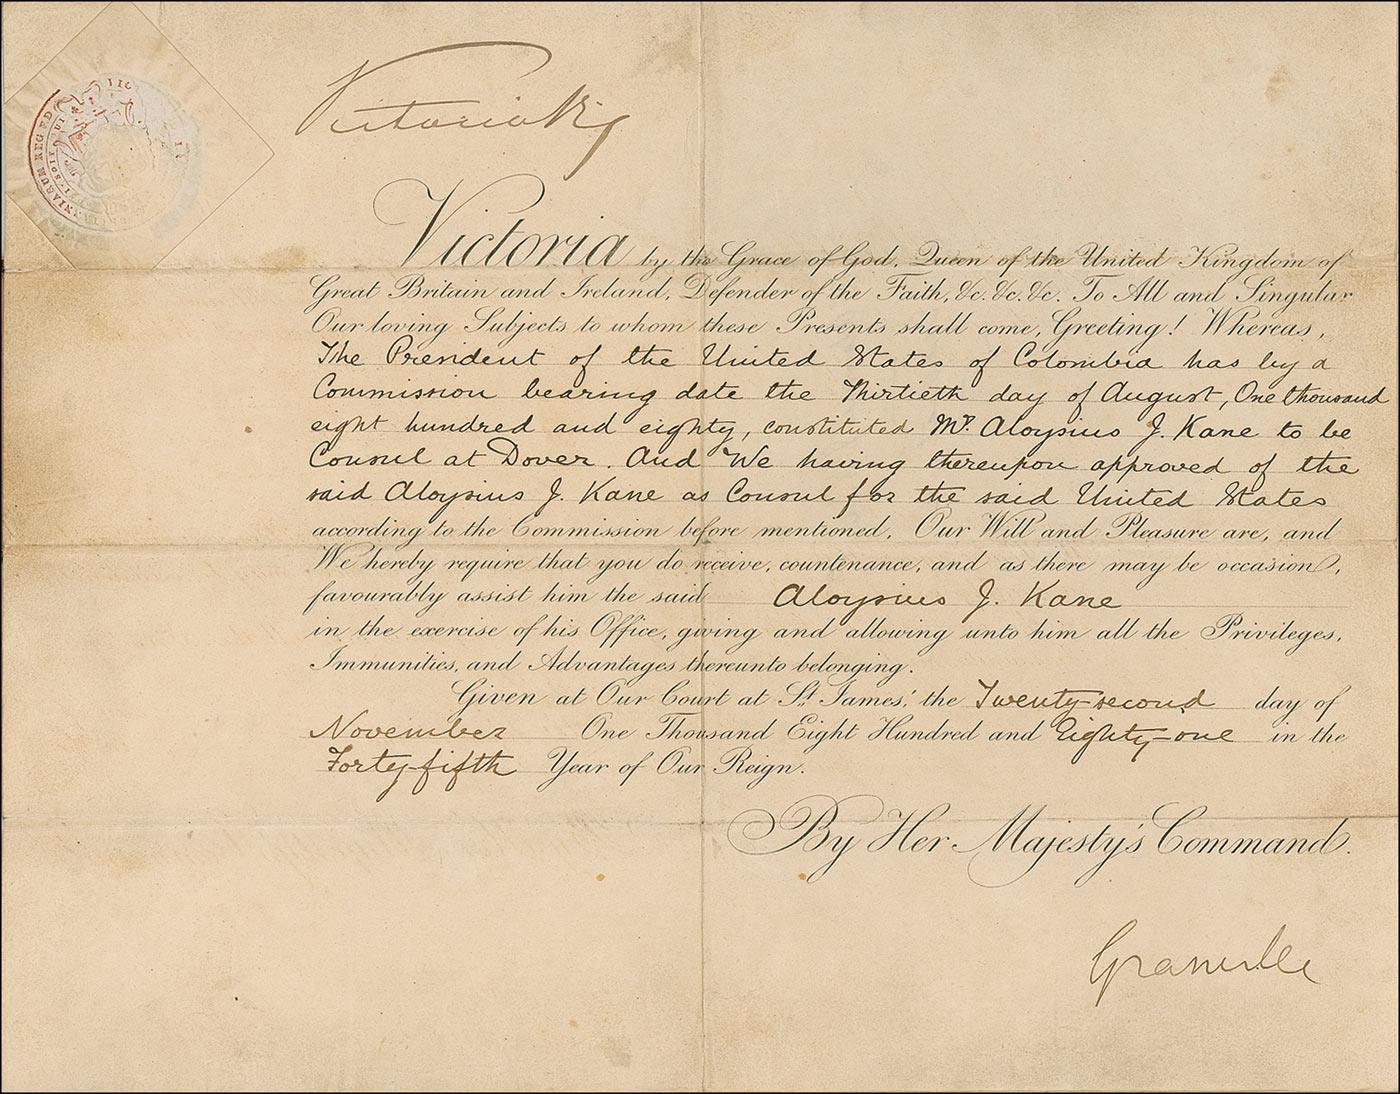 Victoria R
Victoria by the Grace of God, Queen of the United Kingdom of
Great Britain and Ireland, Defender of the Faith, &c. &c. &c. To All and Singular
Our loving Subjects to whom these Presents shall come, Greeting! Whereas,
The President of the United States of Colombia has by a
Commission bearing date the Thirtieth day of August, One thousand
eight hundred and eighty, constituted Mr. Aloysius J. Kane to be
Consul at Dover. And We having thereupon approved of the
said Aloysius J. Kane as Consul for the said United States
according to the Commission before mentioned, Our Will and Pleasure are, and
We hereby require that you do receive, countenance, and as there may be occasion,
favourably assist him the said Aloysius J. Kane
in the exercise of his Office, giving and allowing unto him all the Privileges,
Immunities, and Advantages thereunto belonging.
Given at Our Court at St. James', the Twenty-second day of
November One Thousand Eight Hundred and Eighty-one in the
Forty-fifth Year of Our Reign.
By Her Majesty's Command.
Granville